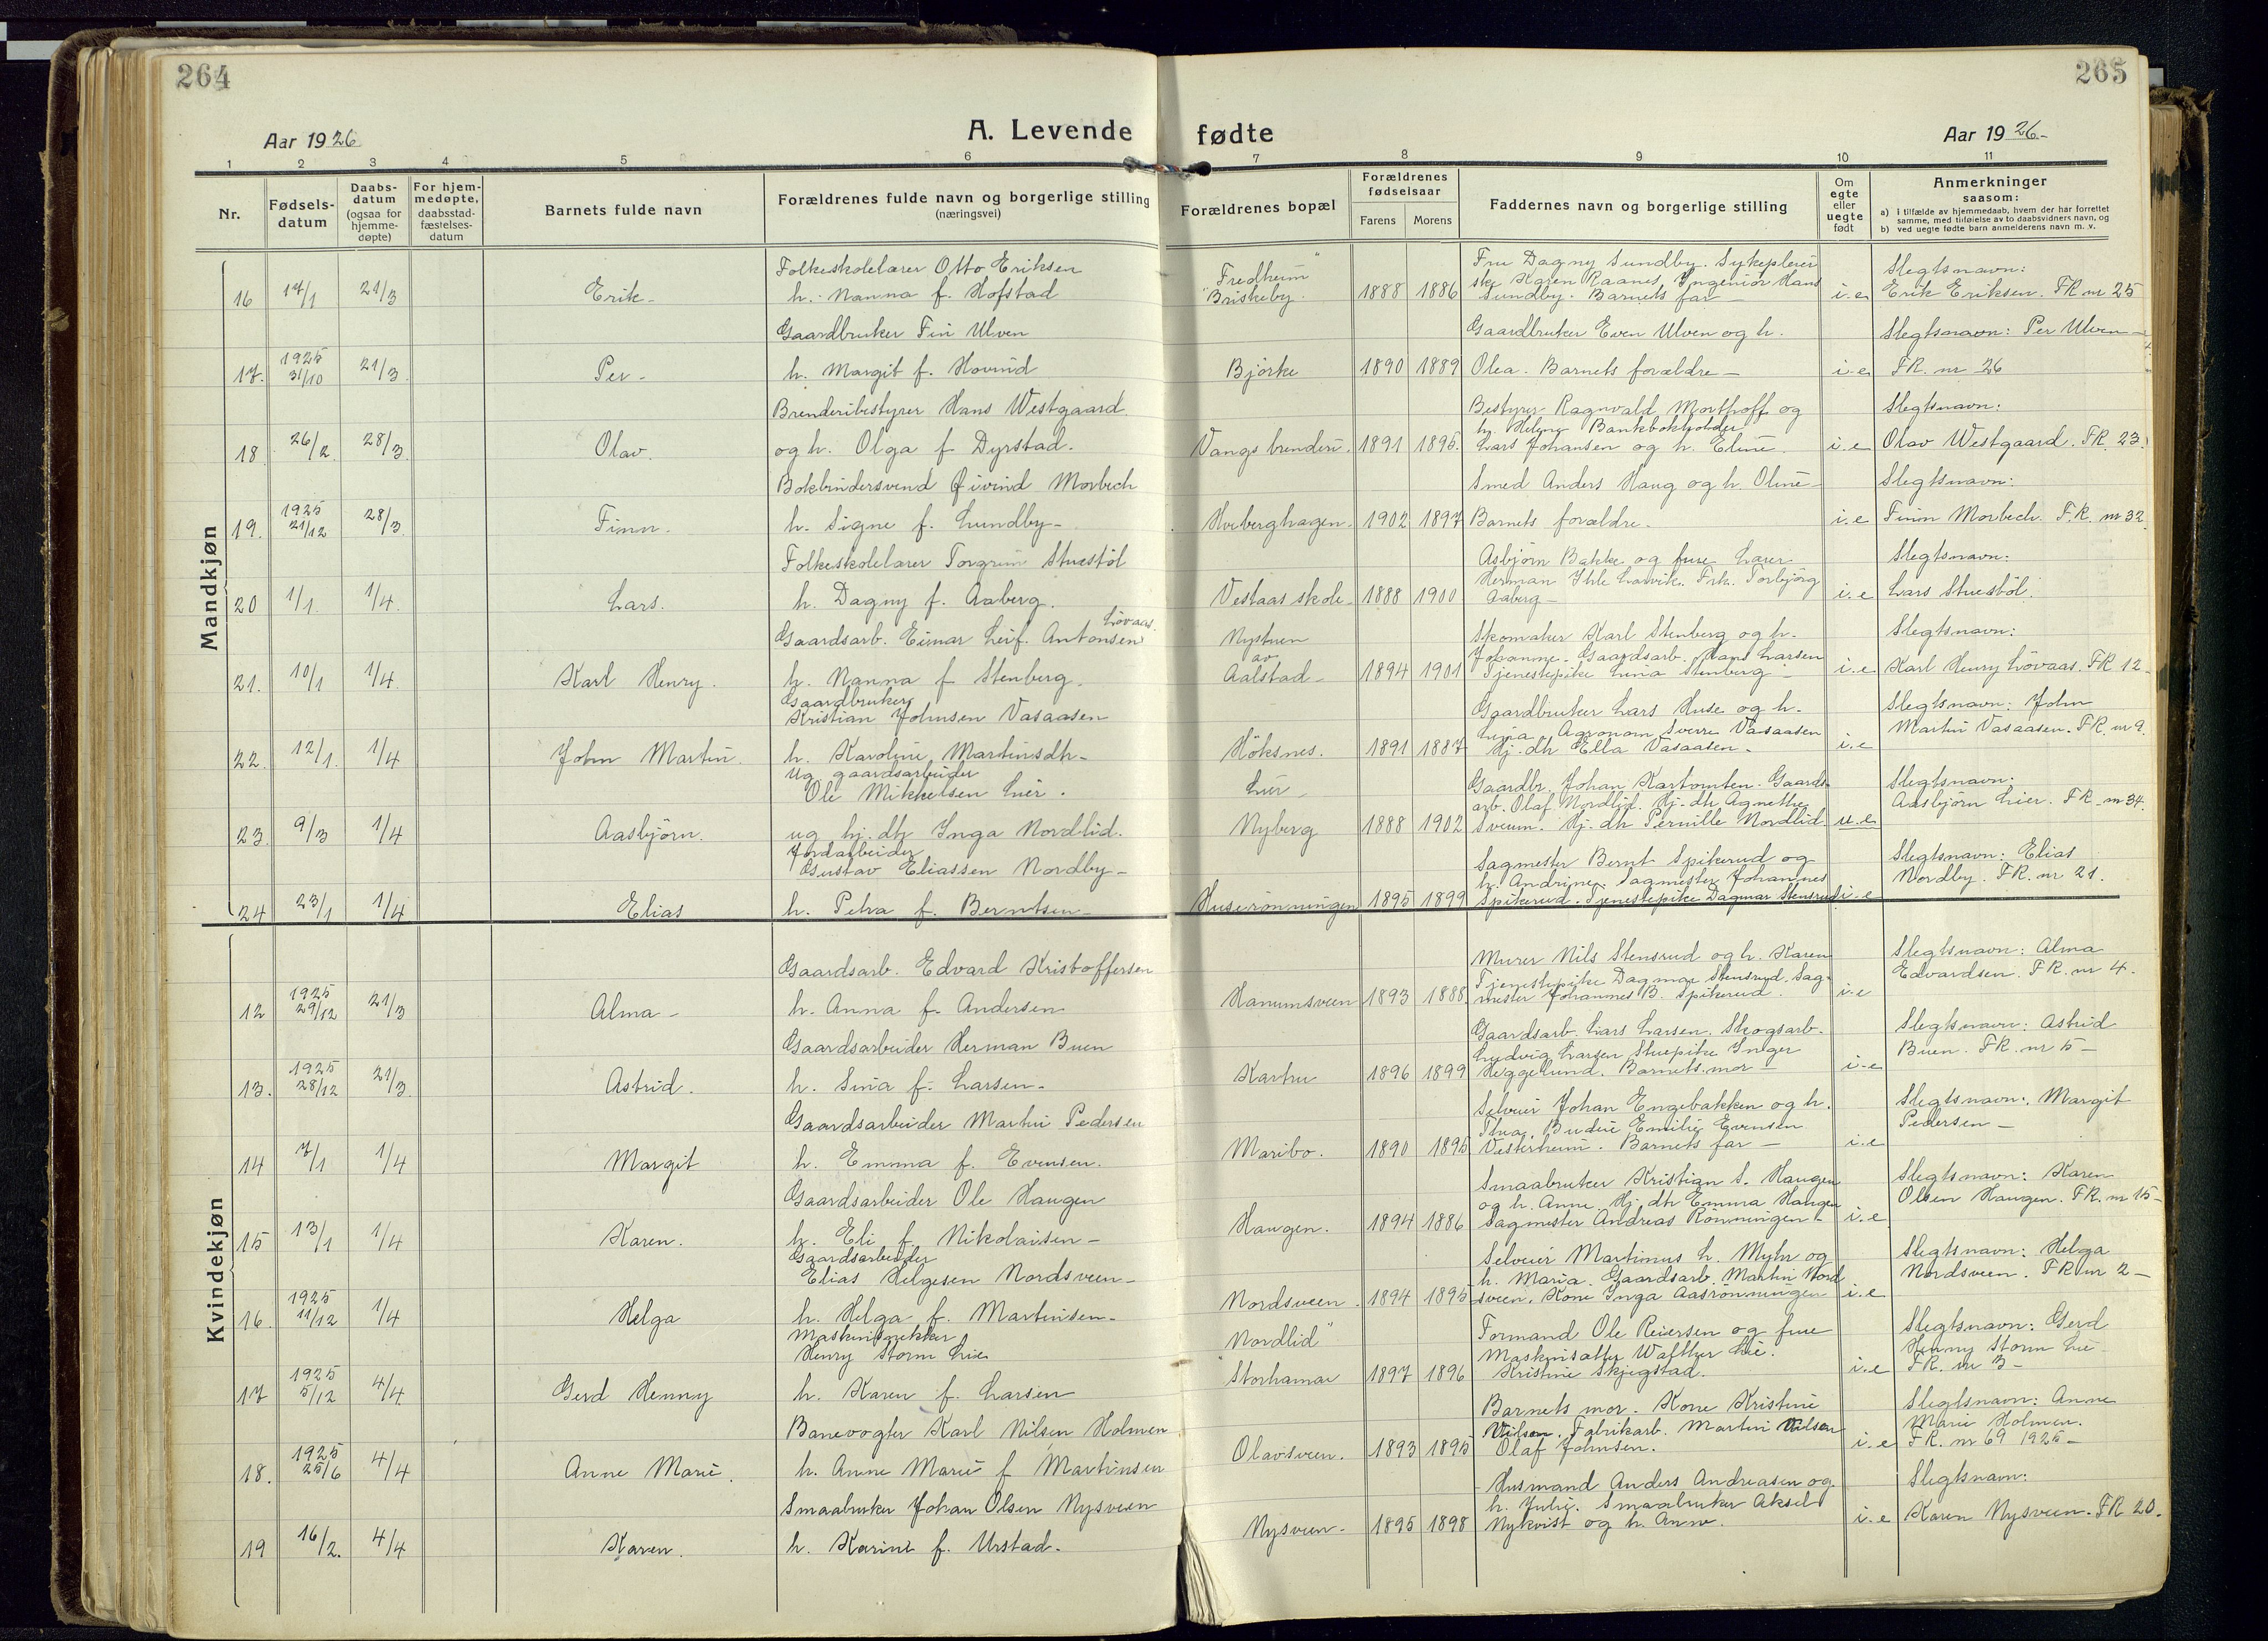 264
265
Aar 1926
A. Levende fødte
Aar 1926.-
1 2 3 4 5 6 7 8 9 10 11
Nr.
Fødsels-
datum
Daabs-
datum
(ogsaa for
hjemme-
døpte)
For hjem-
medøpte,
daabsstad-
fæstelses-
datum
Barnets fulde navn
Forældrenes fulde navn og borgerlige stilling
(næringsvei)
Forældrenes bopæl
Forældrenes
fødselsaar
Farens
Morens
Faddernes navn og borgerlige stilling
Om
egte
eller
uegte
født
Anmerkninger
saasom:
a) i tilfælde av hjemmedaab, hvem der har forrettet
samme, med tilføielse av to daabsvidners navn, og
b) ved uegte fødte barn anmelderens navn m. v.
Mandkjøn
16 17/1 21/3 Erik-
Folkeskolelærer Otto Eriksen
h. Nanna f. Hofstad
"Fredheim"
Briskeby.
1888 1886
Fru Dagny Sundby. Sykepleier
ske Karen Raanes. Ingeniör Hans
Sundby. Barnets far -
i.e
Slegtsnavn:
Erik Eriksen. FR nr 25
17. 1925 31/10 21/3 Per-
Gaardbruker Fin Ulven
h. Margit f. Hovind
Björke
1890 1889
Gaardbruker Even Ulven og h.
Olea. Barnets forældre -
i.e
Slegtsnavn: Per Ulven -
FR. nr 26
18 26/2 28/3 Olav.
Brenderibestyrer Hans Westgaard
og h. Olga f Dyrstad.
Vangs brenderi.
1891 1895.
Bestyrer Ragnvald Morthoff og
h. Helene Bankbokholder
Lars Johansen og h. Eline.
i.e
Slegtsnavn:
Olav Westgaard. FR. 23.
19. 1925 21/12 28/3 Finn.
Bokbindersvend Øivind Morbech
h. Signe f. Lundby-
Hverberghagen.
1902 1897
Smed Anders Haug og h. Oline-
Barnets forældre.
i.e
Slegtsnavn:
Finn Morbech. F.R. nr 32.
20 1/1. 1/4. Lars.
Folkeskolelærer Torgrim Stuestöl
h. Dagny f. Aaberg.
Vestaas skole-
1888 1900
Asbjörn Bakke og frue Lærer
Herman Ihle Larvik. Frk. Torbjörg
Aaberg-
i.e
Slegtsnavn:
Lars Stuestöl.
21. 10/1 1/4. Karl Henry.
Lövaas.
Gaardsarb. Einar Leif. Antonsen
h. Nanna f Stenberg.
Nystuen
av
Aalstad-
1894 1901
Skomaker Karl Stenberg og h.
Johanne. Gaardsarb. Hans Larsen
Tjenestepike Lina Stenberg-
i.e
Slegtsnavn:
Karl Henry Lövaas. FR 12-
22. 12/1. 1/4 John Martin.
Gaardbruker
Kristian Johnsen Vasaasen
h. Karoline Martinsdh-
Höksnes.
1891 1887
Gaardbruker Lars Huse og h.
Lina. Agronom Sverre Vasaasen
Hj. dh Ella Vasaasen-
i.e
Slegtsnavn: John
Martin Vasaasen. FR. nr 9.
23. 9/3 1/4 Aasbjörn.
Ug. gaardsarbeider
Ole Mikkelsen Lier.
ug hj. dh Inga Nordlid.
Lier-
Nyberg
1888 1902
Gaardbr. Johan Kartomten. Gaards-
arb. Olaf Nordlid. Hj. dh. Agnethe
Sveum. Hj. dh Pernille Nordlid
u.e
Slegtsnavn:
Aasbjörn Lier. FR. nr 34.
24 23/1 1/4 Elias
Jordarbeider
Gustav Eliassen Nordby-
h. Petra f. Berntsen-
Huserönningen
1895 1899
Sagmester Bernt Spikerud og
h. Andrine. Sagmester Johannes
Spikerud. Tjenestepike Dagmar Stensrud
i.e
Slegtsnavn: Elias
Nordby. FR. nr 21.
Kvindekjøn
12 1925 29/12 21/3 Alma-
Gaardsarb. Edvard Kristoffersen
h. Anna f. Andersen
Hanumsveen
1893 1888
Murer Nils Stensrud og h. Karen
Tjenestepike Dagmar Stensrud. Sag-
mester Johannes B. Spikerud.
i.e
Slegtsnavn: Alma
Edvardsen. FR. nr 4.
13. 1925 28/12 21/3 Astrid.
Gaardsarbeider Herman Buen
h. Sina f. Larsen.
Kartru
1896 1899
Gaardsarb. Lars Larsen. Skogsarb.
Ludvig Larsen Stuepike Inger
Heggelund. Barnets mor-
i.e
Slegtsnavn: Astrid
Buen. FR. nr 5-
14 7/1 1/4 Margit
Gaardsarbeider Martin Pedersen
h. Emma f. Evensen.
Maribo.
1890 1895
Selveier Johan Engebakken og h.
Thea. Budeie Emilie Evensen
Vesterheim. Barnets far-
i.e
Slegtsnavn: Margit
Pedersen-
15 13/1 1/4 Karen.
Gaardsarbeider Ole Haugen
h. Eli f. Nikolaisen-
Haugen.
1894 1886
Smaabruker Kristian S. Haugen
og h. Anne. Hj. dh Emma Haugen
Sagmester Andreas Rönningen-
i.e
Slegtsnavn: Karen
Olsen Haugen. FR. nr 15-
16. 1925 11/12 1/4 Helga
Gaardsarbeider
Elias Helgesen Nordsveen-
h. Helga f. Martinsen-
Nordsveen.
1894 1895
Selveier Martinus L. Myhr og
h. Maria. Gaardsarb. Martin Nord
sveen. Kone Inga Aasrönningen
i.e
Slegtsnavn: Helga
Nordsveen. FR nr 2-
17 1925 5/12 4/4 Gerd Henny
Maskinsnekker
Henry Storm Lie
h. Karen f. Larsen
Nordlid"
Storhamar
1897 1896
Formand Ole Reiersen og frue
Maskinsætter Walther Lie.
Kristine Skjegstad.
i.e
Slegtsnavn: Gerd
Henny Storm Lie-
FR. nr 3-
18. 1925 25/6 4/4 Anne Marie.
Banevogter Karl Nilsen Holmen
h. Anne Marie f Martinsen
Olavsveen.
1893 1895
Barnets mor. Kone Kristine
Nilsen. Fabrikarb. Martin Nilsen
Olaf Johnsen.
i.e
Slegtsnavn: Anne
Marie Holmen.
FR. nr 69 1925-
19 16/2. 4/4 Karen.
Smaabruker Johan Olsen Nysveen
h. Karine f. Urstad.
Nysveen-
1895 1898
Husmand Anders Andreasen og
h. Julie. Smaabruker Aksel
Nykvist og h. Anne.
i.e
Slegtsnavn:
Karen Nysveen. FR 20.